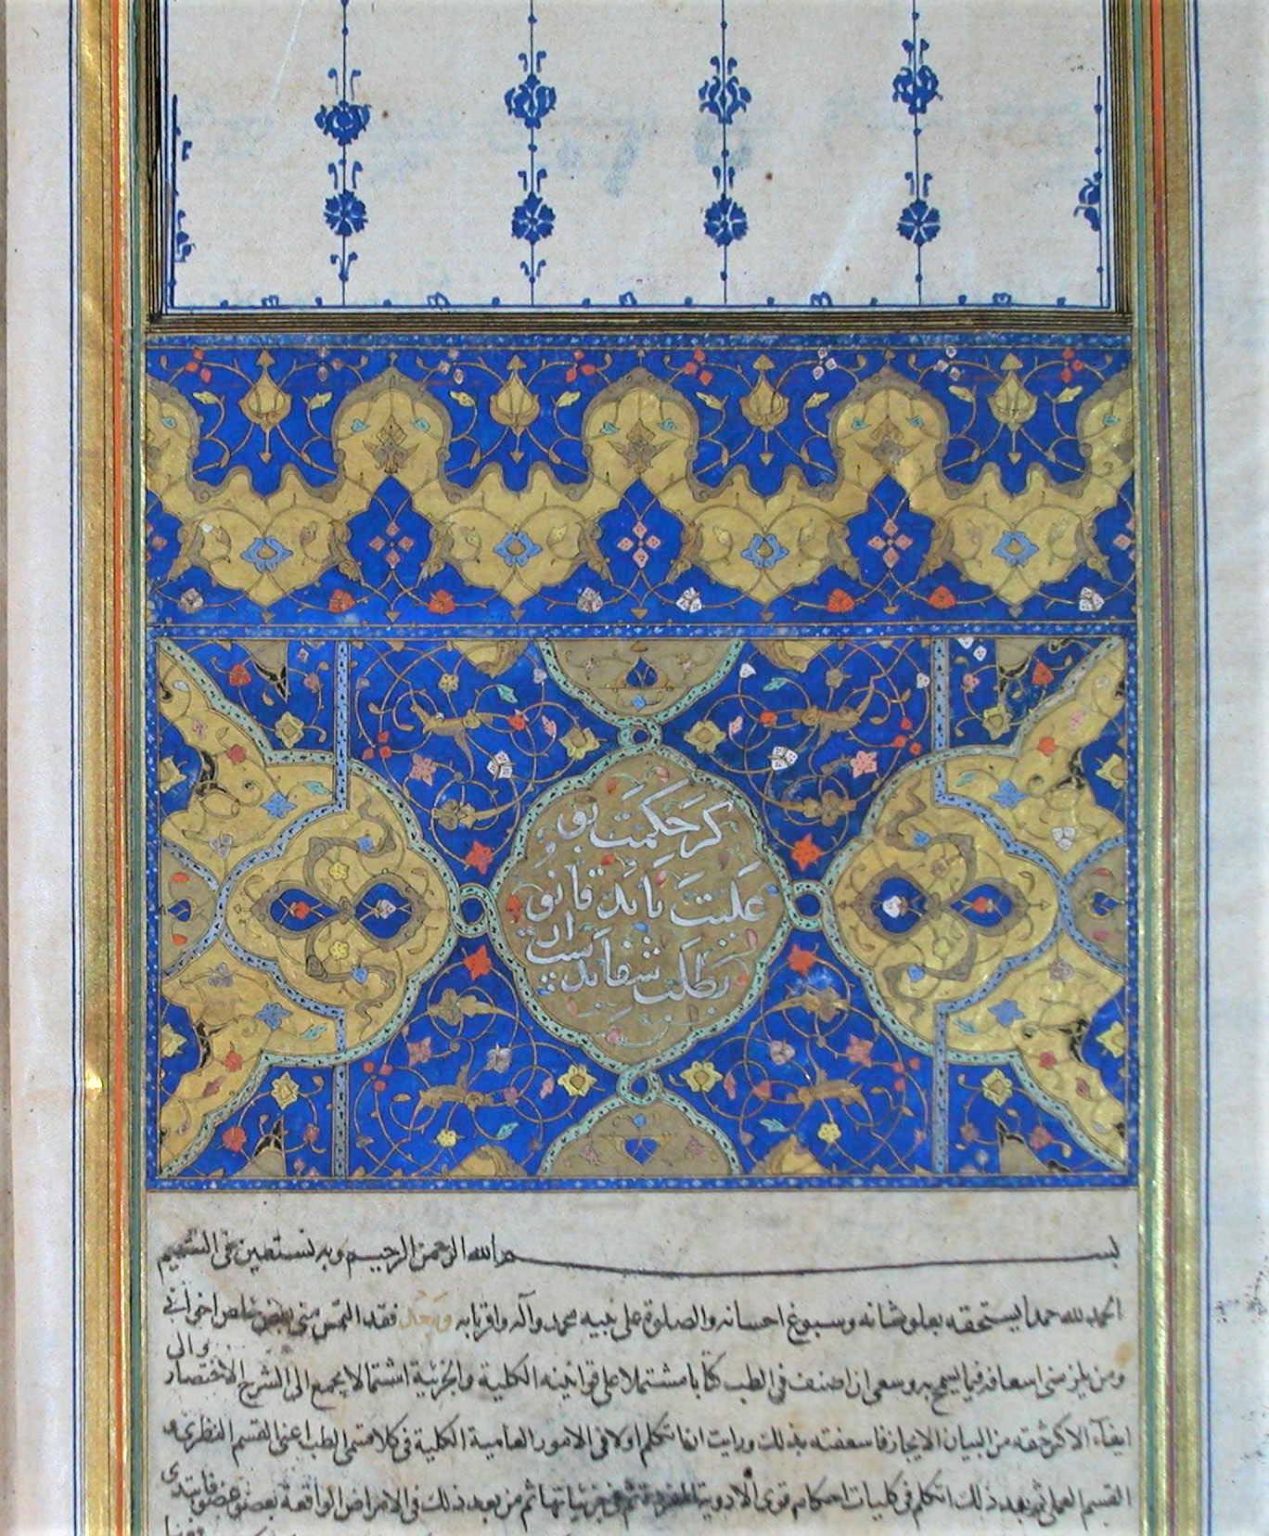 كر حكمت بو
عليت بايد قانون
بطلب شفا بدست
بسم الله الرحمن الرحيم وبه نستعين في التتميم
الحمد لله حمدا يستحقه بعلو شانه وسبوغ احسانه والصلوة على نبيه محمد وآله واقربايه وبعد فقد التمس منى بعض خلص اخوانى
ومن يلزمنى اسعافه فيما يسمح به وسعى ان اصنف في الطب كتابا مشتملا على قوانينه الكلية والجزئية اشتمالا يجمع الى الشرح الاختصار والى
ايفآء الاكثر حقه من البيان الايجاز فاسعفته بذلك ورايت ان اتكلم اولا فى الامور العامية الكلية فى كلا قسمى الطب اعنى القسم النظرى و
القسم العملى ثم بعد ذلك اتكلم فى كليات احكام قوى الادوية المفردة ثم فى جزئياتها ثم من بعد ذلك فى الامراض الواقعة بعضو عضو فابتدى